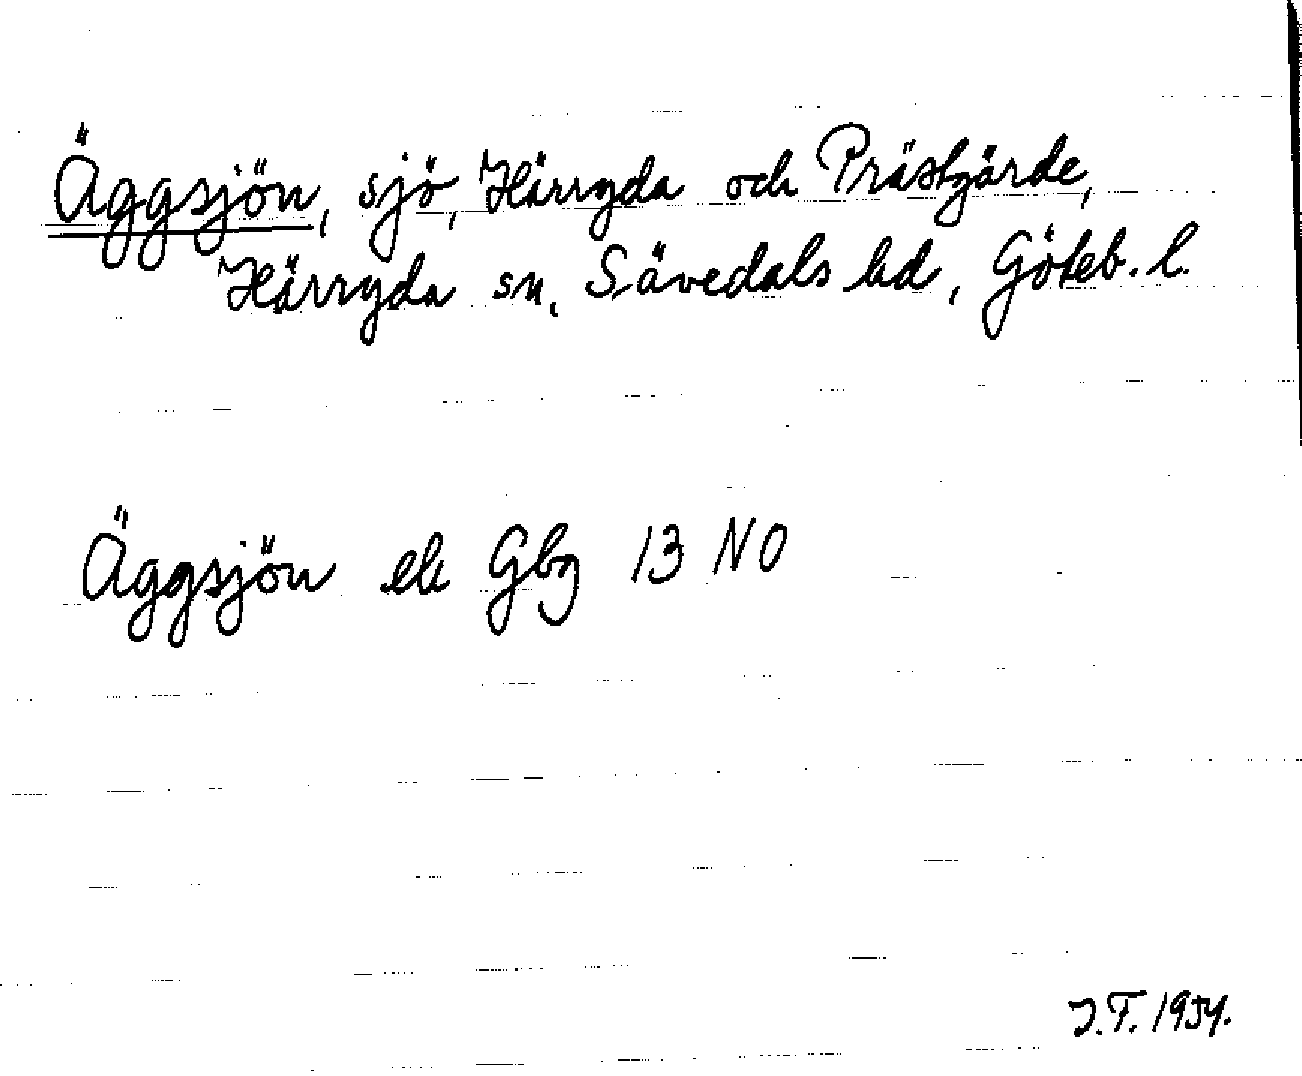 Äggsjön, sjö, Härryda och Prästgärde,
Härryda sn, Sävedals hd, Göteb. l.
Äggsjön ek Gbg 13 NO
J.F. 1954.